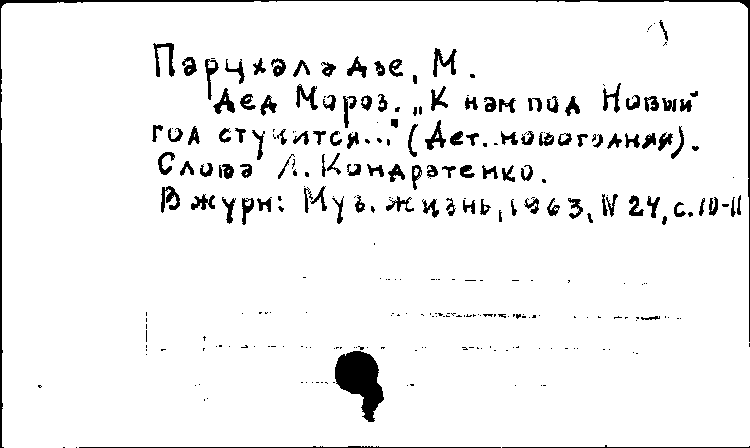 Парцхаладзе, М.
Дед Мороз. „К нам под Новый
год стучится..." (Дет. новогодняя).
Слова Л. Кондратенко.
В журн: Муз. жизнь, 1963, N 24, с. 10-11